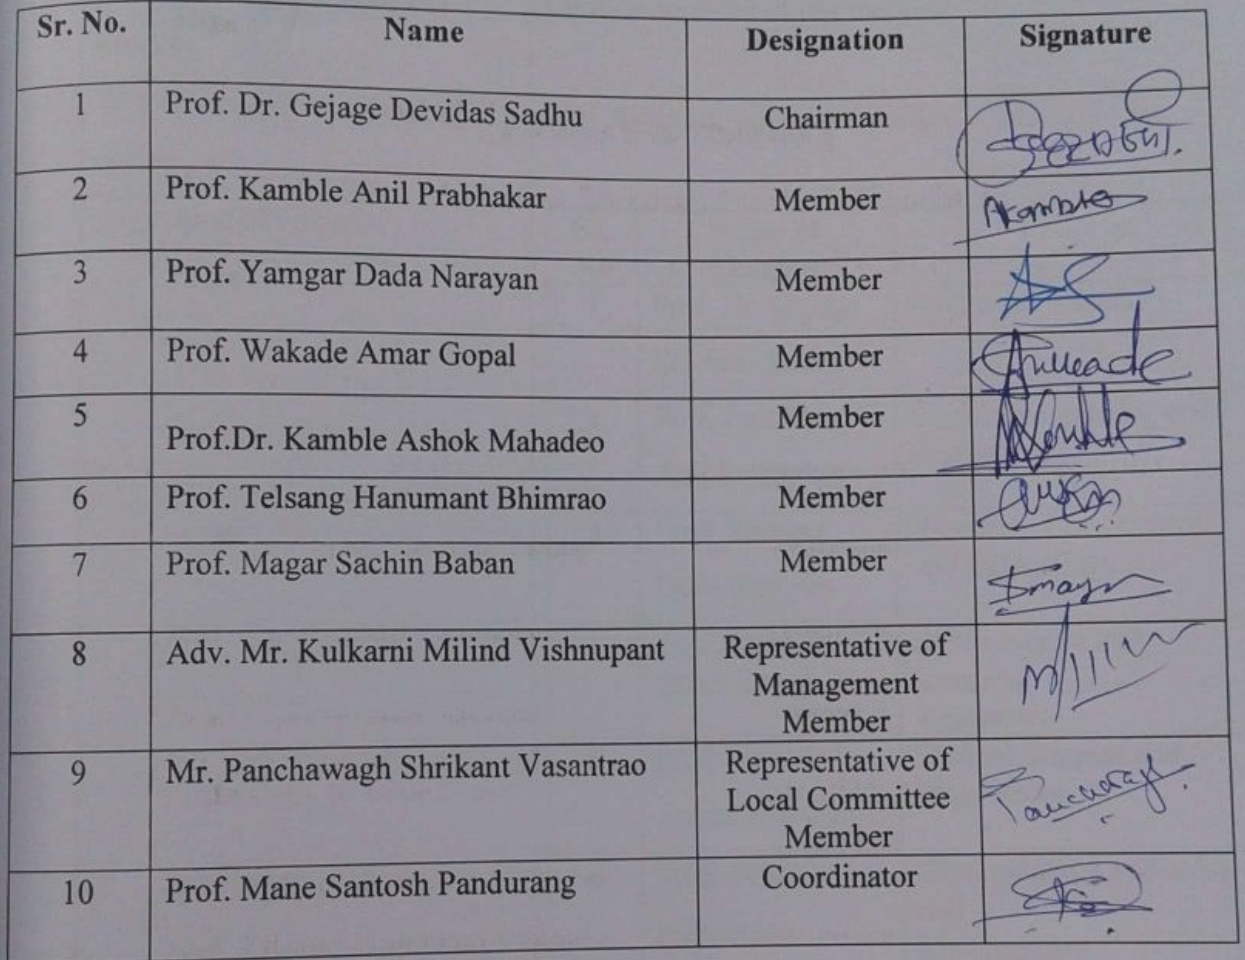 Sr. No. Name Designation Signature
1 Prof. Dr. Gejage Devidas Sadhu Chairman
2 Prof. Kamble Anil Prabhakar Member Akamble
3 Prof. Yamgar Dada Narayan Member
4 Prof. Wakade Amar Gopal Member
5 Prof.Dr. Kamble Ashok Mahadeo Member
6 Prof. Telsang Hanumant Bhimrao Member
7 Prof. Magar Sachin Baban Member
8 Adv. Mr. Kulkarni Milind Vishnupant Representative of
Management
Member
9 Mr. Panchawagh Shrikant Vasantrao Representative of
Local Committee
Member
10 Prof. Mane Santosh Pandurang Coordinator